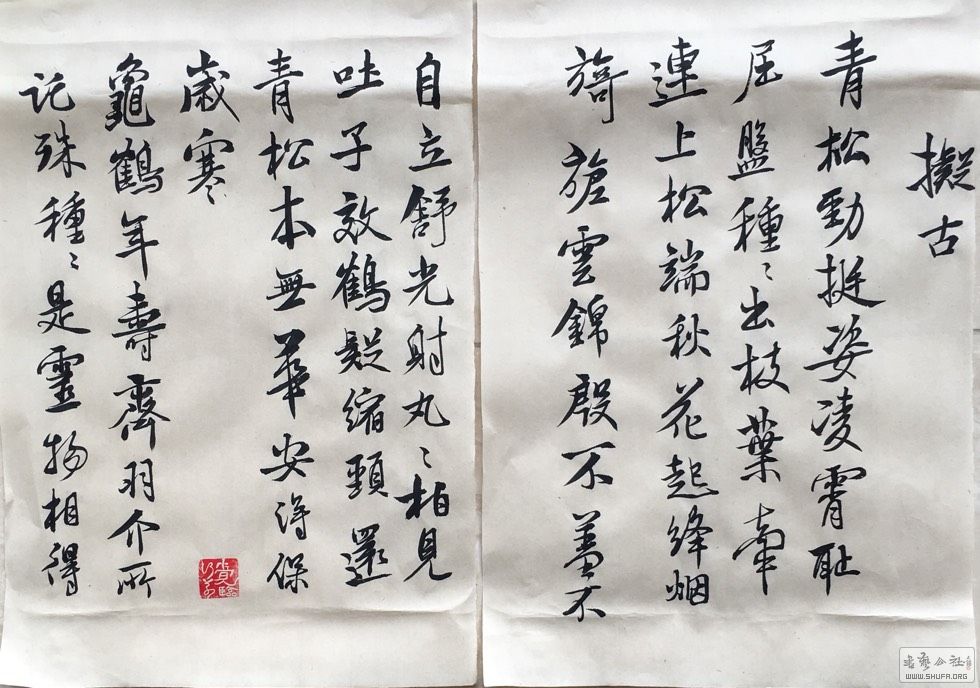 擬古
青松勁挺姿凌霄耻
屈盤種〻出枝葉牽
連上松端秋花起絳烟
旖旎雲錦殷不羞不
自立舒光射丸〻柏見
吐子效鶴疑縮頸還
青松本無華安得保
歲寒
龜鶴年壽齊羽介所
託殊種〻是靈物相得
书艺公社
WWW.SHUFA.ORG